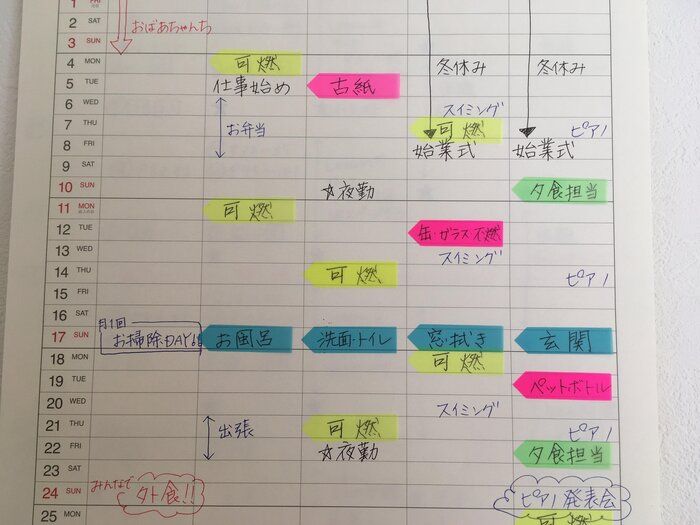 1 FRI
2 SAT おばあちゃんち
3 SUN
4 MON 可燃 冬休み 冬休み
5 TUE 仕事始め 古紙
6 WED スイミング
7 THU お弁当 可燃 ピアノ
8 FRI 始業式 始業式
9 SAT
10 SUN ☆夜勤 夕食担当
11 MON 可燃
12 TUE 缶・ガラス 不燃
13 WED スイミング
14 THU 可燃 ピアノ
15 FRI
16 SAT 月1回
17 SUN お掃除DAY お風呂 洗面・トイレ 窓・拭き 玄関
18 MON 可燃
19 TUE ペットボトル
20 WED スイミング
21 THU 出張 可燃 ピアノ
22 FRI ☆夜勤 夕食担当
23 SAT
24 SUN みんなで 外食!! ピアノ発表会
25 MON 可燃